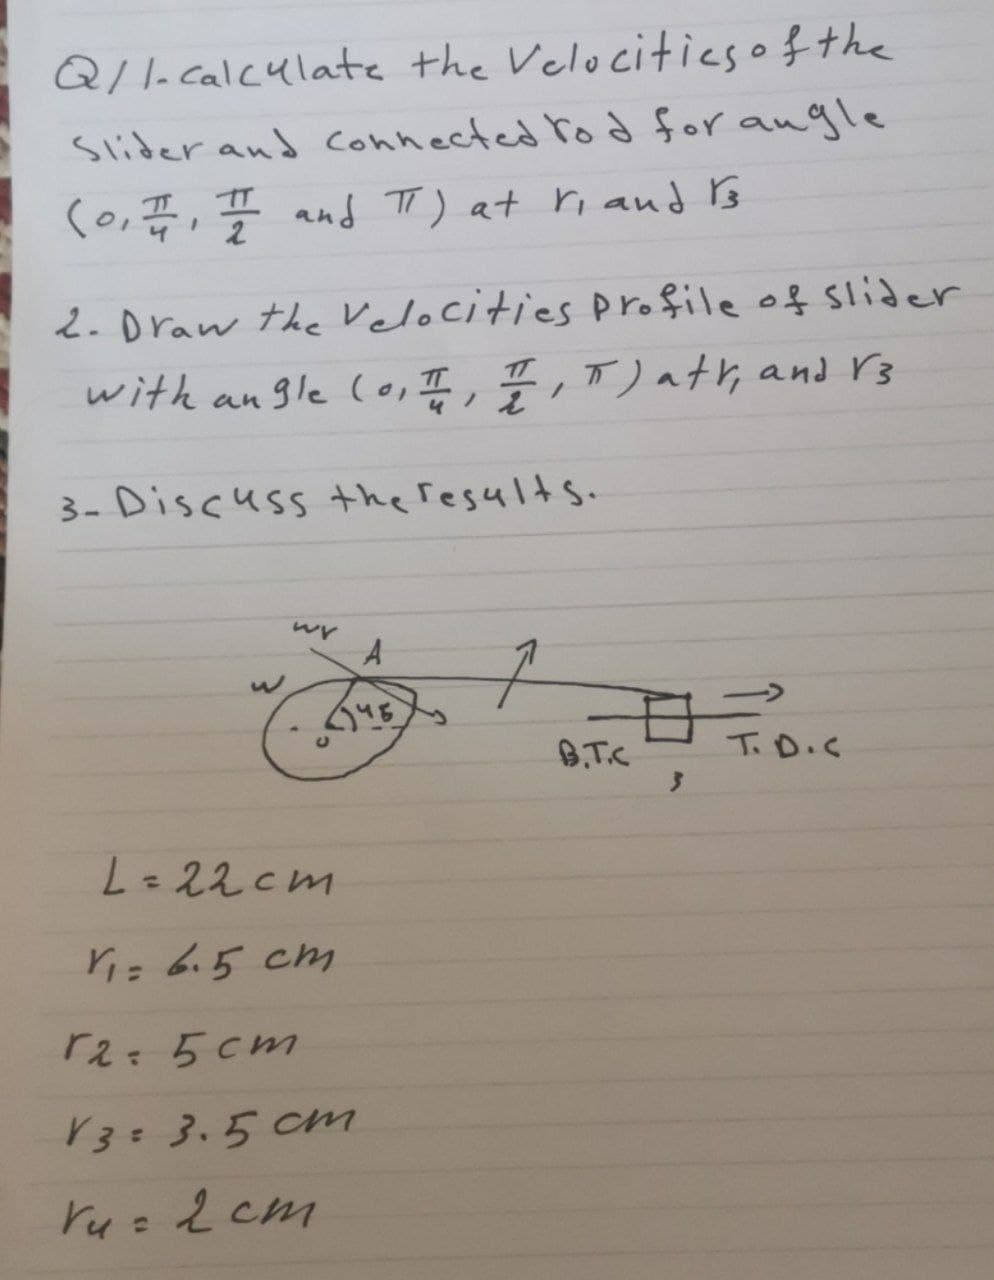 Q/1-Calculate the Velocities of the
Slider and connected rod for angle
(0, π/4, π/2 and π) at r1 and r3
2- Draw the Velocities profile of slider
with angle (0, π/4, π/2, π) at r1 and r3
3- Discuss the results.
wr
A
w
45
o
B.T.C
T.D.C
3
L = 22 cm
r1 = 6.5 cm
r2 = 5 cm
r3 = 3.5 cm
r4 = 2 cm